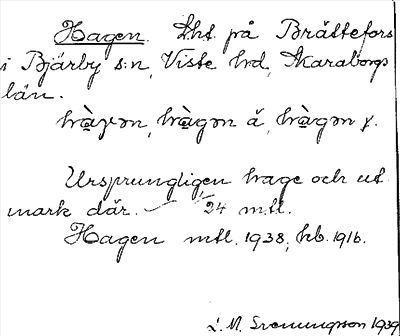 Hagen. Lht. på Bråttefors
i Bjärby s:n, Viste hrd, Skaraborgs
län.
hàɣən, hàgən ä, hàgən y.
Ursprungligen hage och ut
mark där. — 1/24 mtl.
Hagen mtl. 1938, kb. 1916.
L. M. Svenungsson 1939